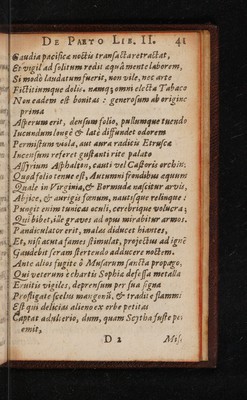 DE PAETO LIB. II. 41
Gaudia pacificæ noctis transacta retractat,
Et vigil ad solitum redis equâ mente laborem,
Si modò laudatum fuerit, non vile, nec arte
Fictitiumque dolis. namq; omni electa Tabaco
Non eadem est bonitas: generosum ab origine
prima
Asperum erit, densum folio, pullumque tuendo
Jucundum longè & latè diffundet odorem
Permistum viola, aut aura raditus Etruscæ
Incensum referet gustanti rite palato
Assyrium Asphalton, tauti vel Castoris orchin;
Quod folio tenue est, Autumni frondibus equum
Quale in Virginia, & Bormuda nascitur arvis,
Abjice, & aurigis sannum, nautisque relinque:
Pungit enim tunicas oculi, cerebrique volucra;
Qui bibet, ille graves ad opus mirabitur armos.
Pandiculator erit, malas diducet hiantes,
Et, nisi acuta fames stimulat, projectus ad ignē
Gaudebit seram stertendo adducere noctem.
Ante alios fugite ô Musarum sancta propago,
Qui veterum è chartis Sophia defossa metalla
Eruitis vigiles, deprensum per sua signa
Profligate scelus mangonū, & tradite flammis
Est qui delicias alieno ex orbe petitas
Captat adulterio, dum, quam Scytha fuste pe-
emit,
D 2 Mis-